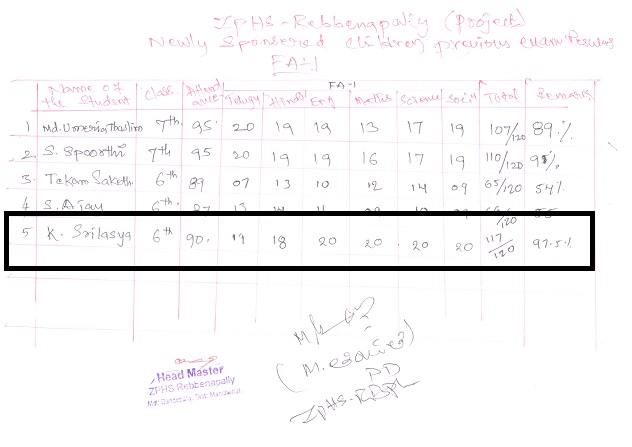 ZPHS-Rebbenapally (Project)
Newly Sponsered children previous exam Results
FA-1
FA-1
Name of the Student Class Attend ance Telugu Hindi Eng Maths Science Social Total Remarks
1 7th 95 20 19 19 13 17 19 107/120 89%
2 S. Spoorthi 7th 95 20 19 19 16 17 19 110/120
3 Tekam Saketh 6th 89 07 13 10 12 14 09 65/120 54%
4 S. Ajay 6th 87 13 14 11 55
5 K. Srilasya 6th 90 19 18 20 20 20 20 117/120 97.5%
Head Master
ZPHS Rebbenapally
PD
ZPHS-RBPL